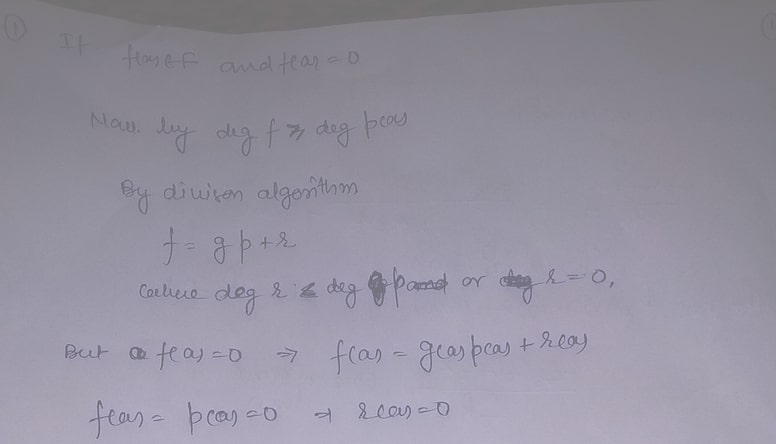 ①
If f(a) ∈ F and f(a) = 0
Now by deg f ≥ deg p(a)
By divison algorithm
f = g p + r
where deg r ≤ deg p or r = 0,
But f(a) = 0 ⇒ f(a) = g(a) p(a) + r(a)
f(a) = p(a) = 0 ⇒ r(a) = 0